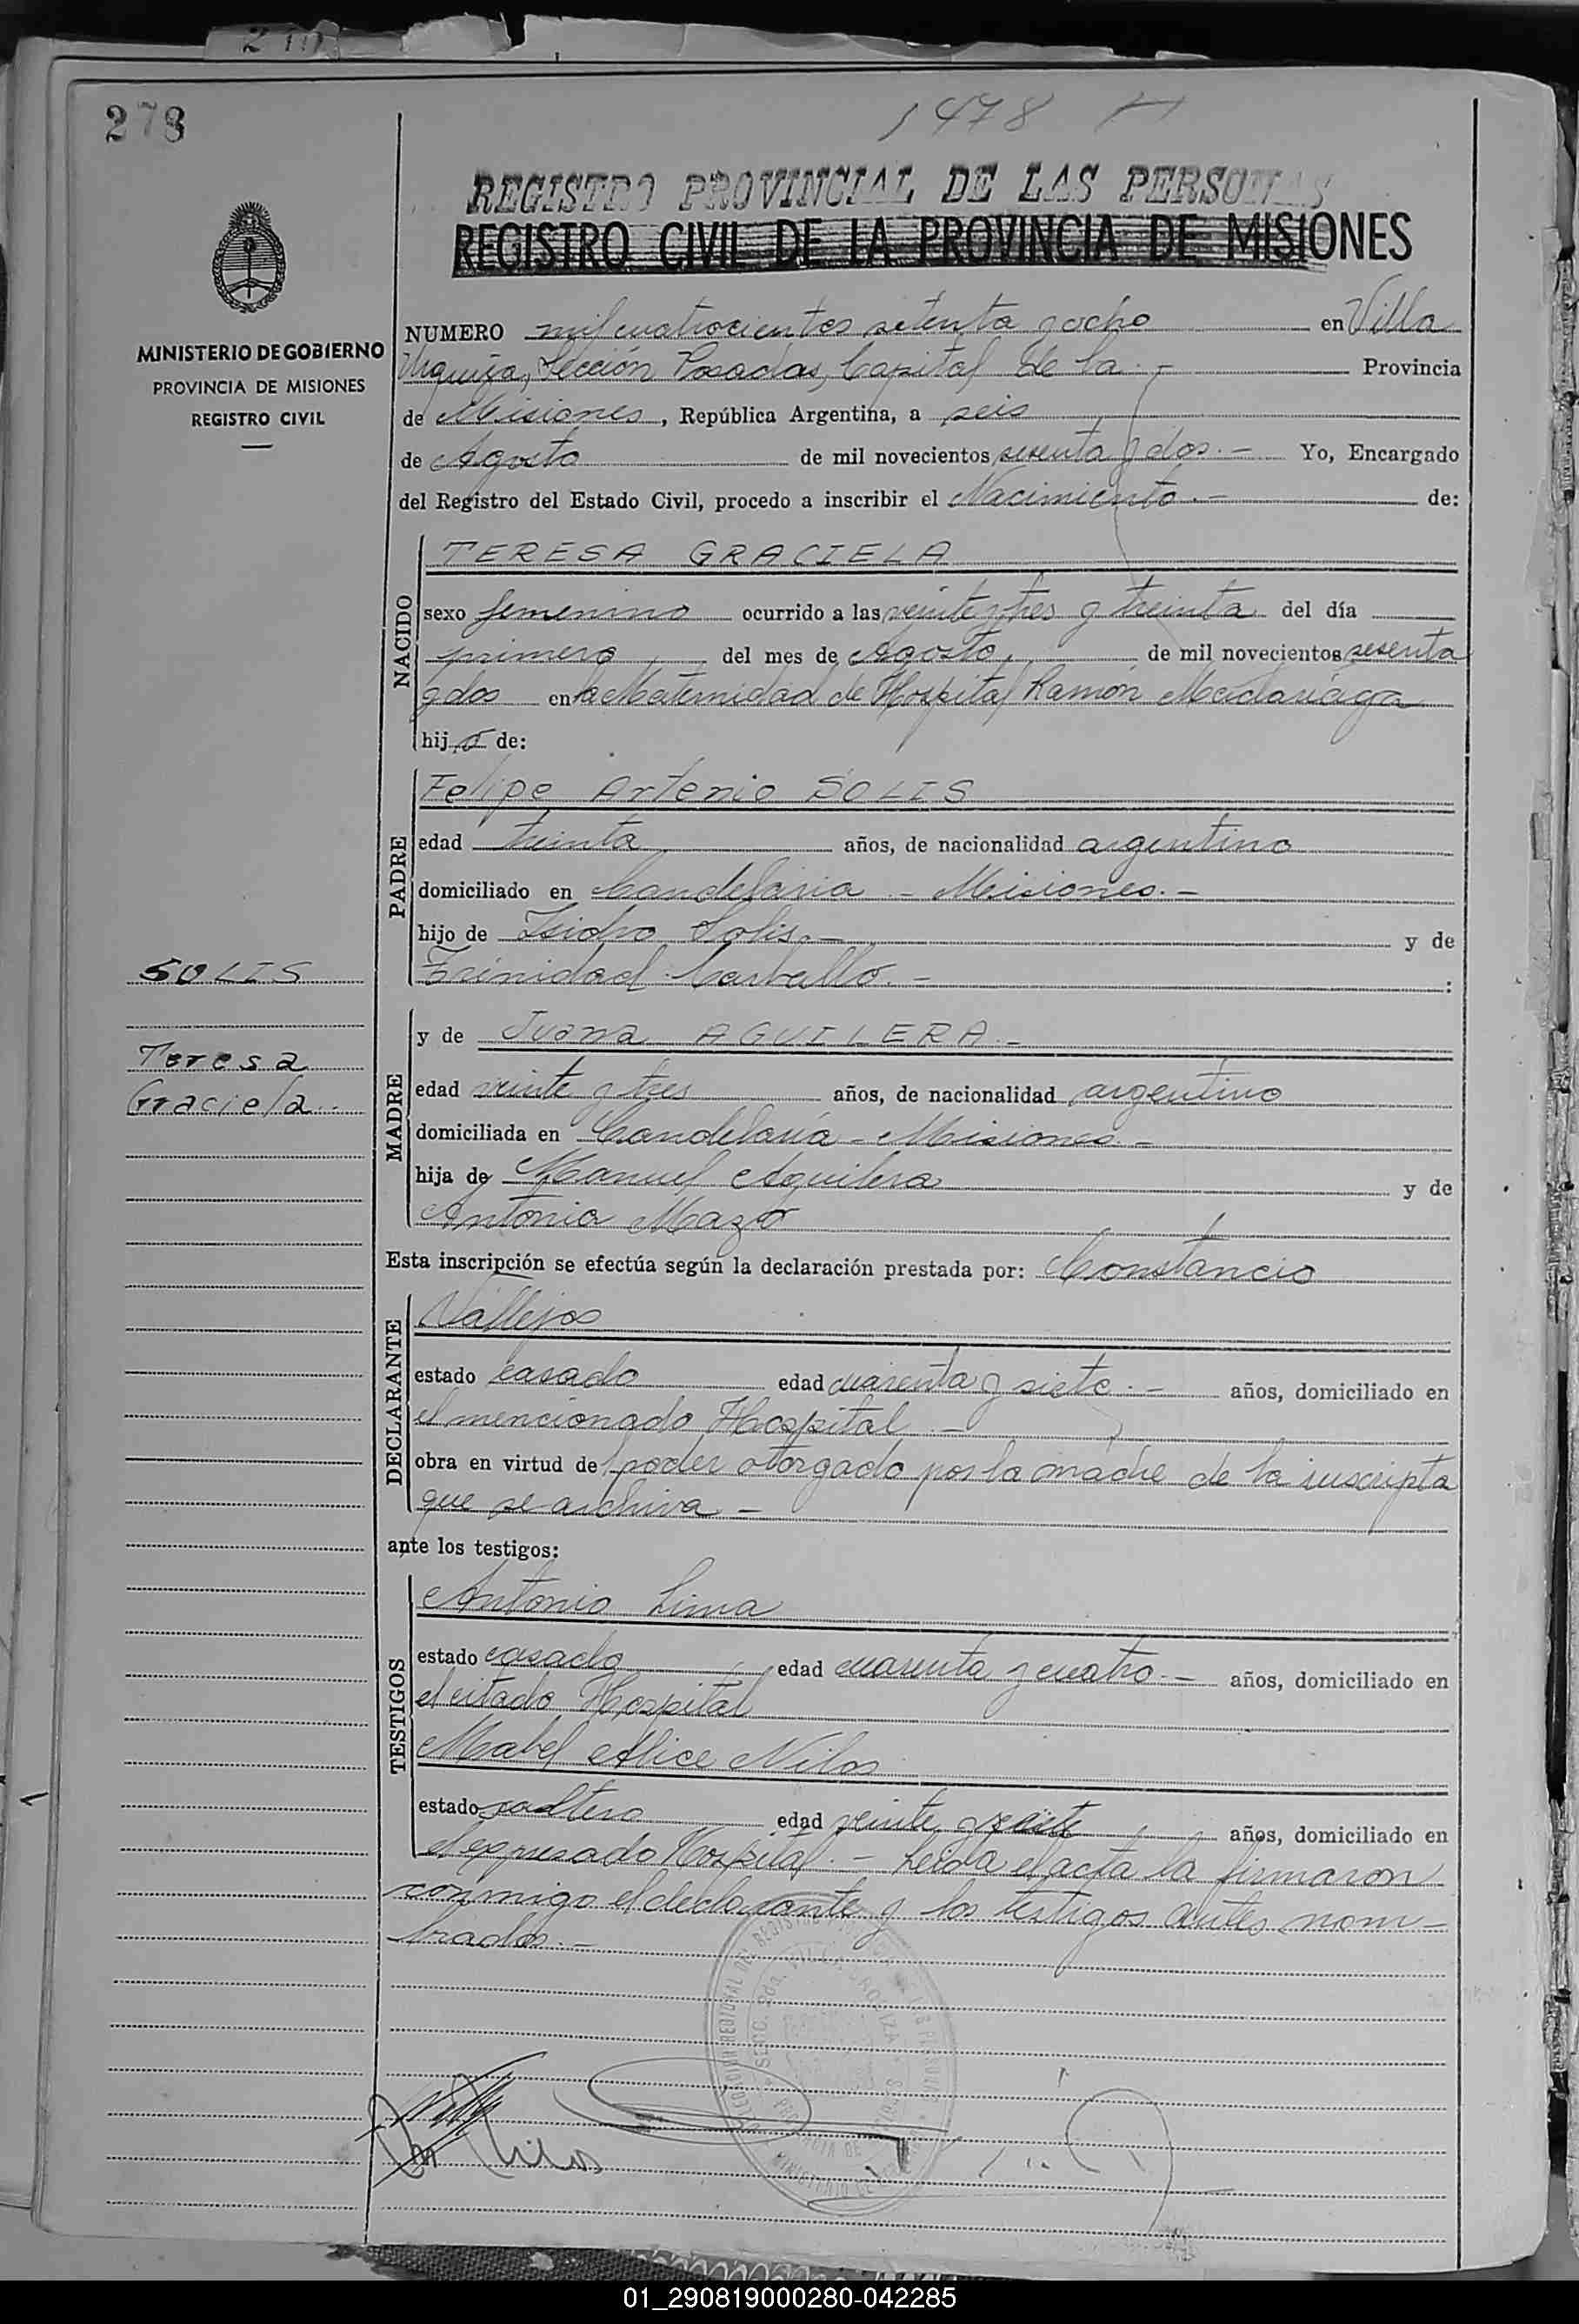 278
1478
REGISTRO PROVINCIAL DE LAS PERSONAS
REGISTRO CIVIL DE LA PROVINCIA DE MISIONES
MINISTERIO DE GOBIERNO
PROVINCIA DE MISIONES
REGISTRO CIVIL
NUMERO mil cuatrocientos setenta y ocho en Villa
Urquiza, Sección Posadas, Capital de la.- Provincia
de Misiones, República Argentina, a seis
de Agosto de mil novecientos sesenta y dos.- Yo, Encargado
del Registro del Estado Civil, procedo a inscribir el Nacimiento.- de:
NACIDO
TERESA GRACIELA
sexo femenino ocurrido a las veinte y tres y treinta del día
primero del mes de Agosto, de mil novecientos sesenta
y dos en la Maternidad de Hospital Ramón Madariaga
hija de:
PADRE
Felipe Artenio SOLIS
edad treinta años, de nacionalidad argentino
domiciliado en Candelaria - Misiones.-
hijo de Isidro Solis.- y de
Trinidad Carballo.- :
SOLIS
Teresa
Graciela.-
MADRE
y de Juana AGUILERA.-
edad veinte y tres años, de nacionalidad argentino
domiciliada en Candelaria - Misiones.-
hija de Manuel Aguilera y de
Antonia Mazo
Esta inscripción se efectúa según la declaración prestada por: Constancio
DECLARANTE
Vallejos
estado casado edad cuarenta y siete.- años, domiciliado en
el mencionado Hospital.-
obra en virtud de poder otorgado por la madre de la inscripta
que se archiva.-
ante los testigos:
TESTIGOS
Antonio Lima
estado casado edad cuarenta y cuatro.- años, domiciliado en
el citado Hospital
Mabel Alice Nilos
estado soltera edad veinte y siete años, domiciliado en
el expresado Hospital.- Leida el acta la firmaron
conmigo el declarante y los testigos antes nom-
brados.-
01_290819000280-042285